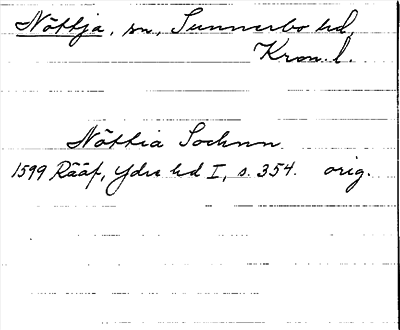 Nöttja, sn, Sunnerbo hd,
Kron. l.
Nöttia Sochnn
1599 Rääf, Ydre hd I, s. 354. orig.